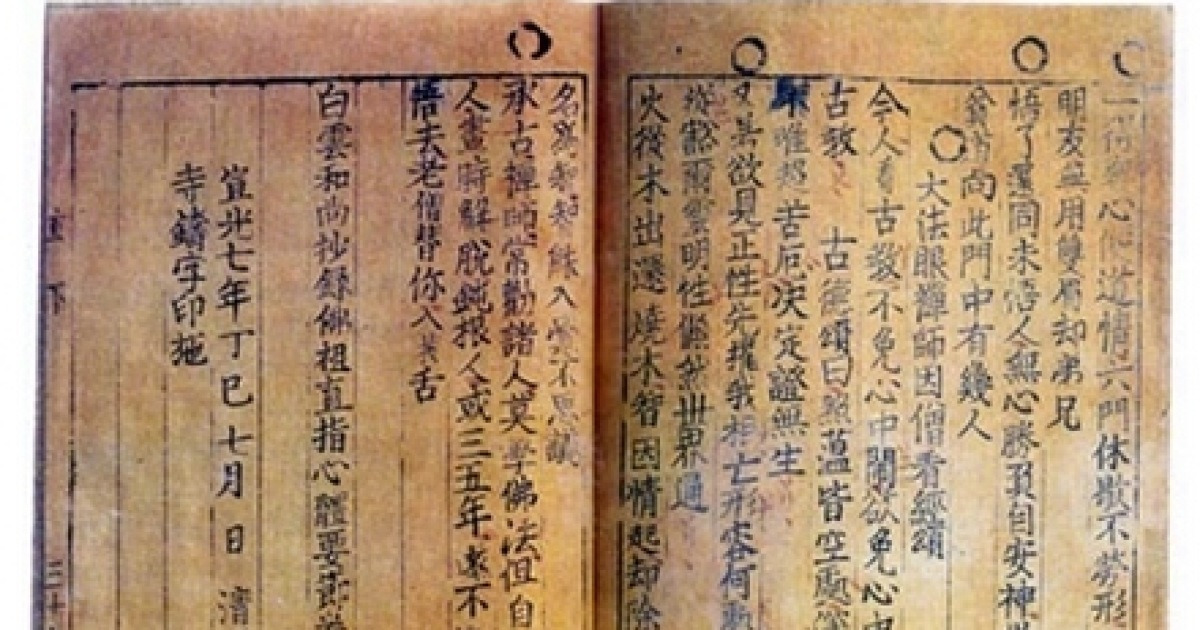 心 道情六門休歇不勞形
明友無用雙眉却弟兄
悟了還同未悟人無心勝負自安神
向此門中有幾人
大法眼禪師因僧看經頌
今人看古教不免心中鬧欲免心中
古教 古德頌曰照蘊皆空
唯超苦厄決定證無生
又若欲見正性先 我相亡形容何
豁爾靈明性儼然世界通
火從木出還燒木智因情起却除
名爲 智能入 不思議
承古禪師常勸諸人莫學佛法但自
人 時解脫鈍根人或三五年 不
悟去老僧替你入 舌
白雲和尚抄錄佛祖直指心體要節
宣光七年丁巳七月 日 清
寺鑄字印施
下
三十